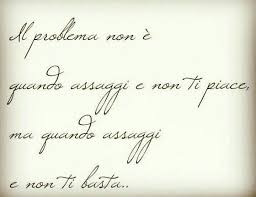 Il problema non è
quando assaggi e non ti piace,
ma quando assaggi
e non ti basta..